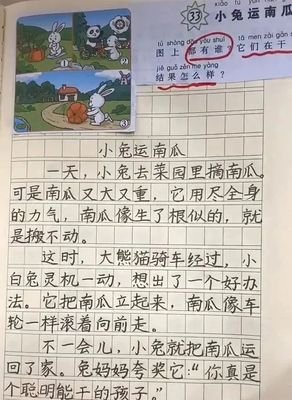 xiǎo tù yùn nán
33 小兔运南瓜
tú shàng dōu yǒu shuí tā men zài gàn
图上都有谁？它们在干
jié guǒ zěn me yàng
结果怎么样？
②
③
小兔运南瓜
一天，小兔去菜园里摘南瓜。
可是南瓜又大又重，它用尽全身
的力气，南瓜像生了根似的，就
是搬不动。
这时，大熊猫骑车经过，小
白兔灵机一动，想出了一个好办
法。它把南瓜立起来，南瓜像车
轮一样滚着向前走。
不一会儿，小兔就把南瓜运
回了家。兔妈妈夸奖它：“你真是
个聪明能干的孩子。”